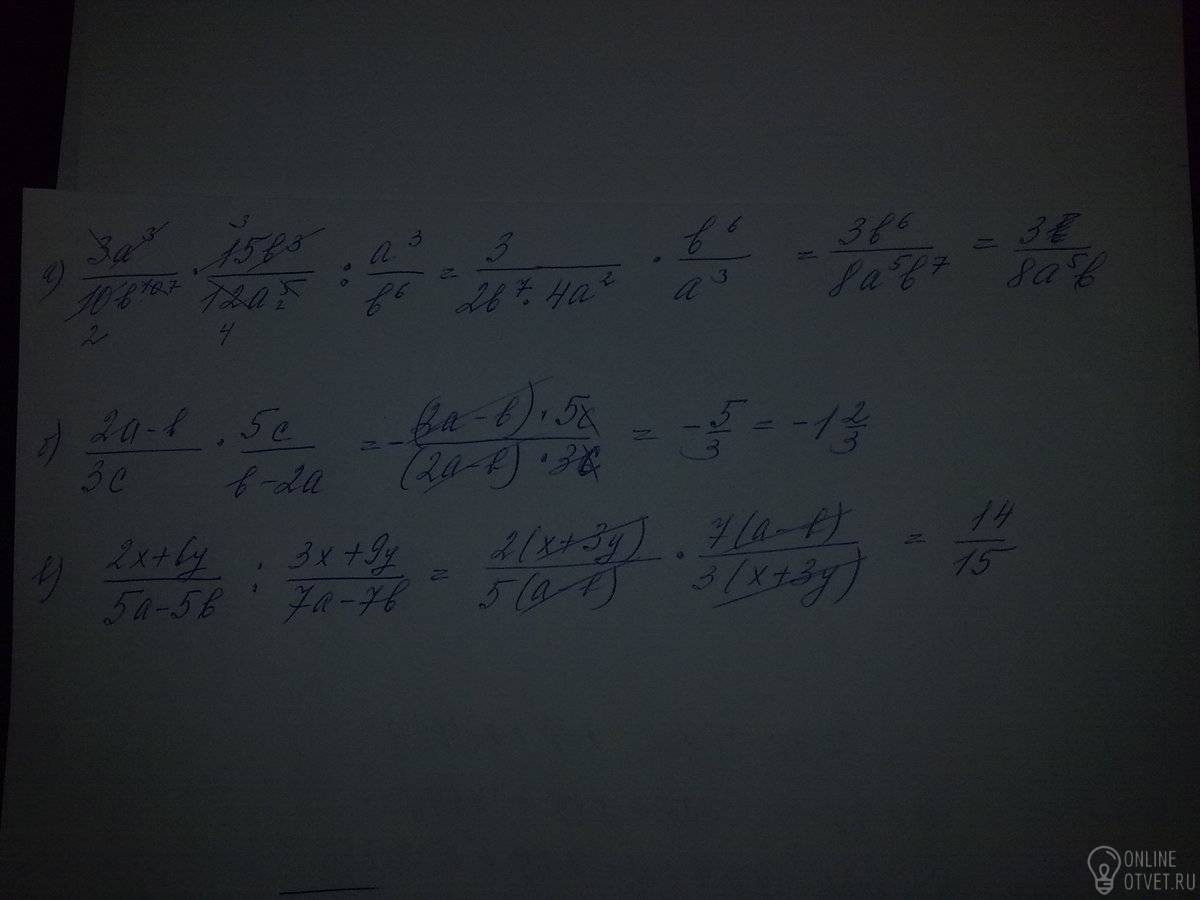 а) 3a³/10b¹⁰ ⁷ · 15b³/12a⁵ : a³/b⁶ = 3/2b⁷·4a² · b⁶/a³ = 3b⁶/8a⁵b⁷ = 3/8a⁵b
3 2 4 2
б) 2a-b/3c · 5c/b-2a = -(2a-b)·5c/(2a-b)·3c = -5/3 = -1 2/3
в) 2x+6y/5a-5b : 3x+9y/7a-7b = 2(x+3y)/5(a-b) · 7(a-b)/3(x+3y) = 14/15
ONLINE
OTVET.RU